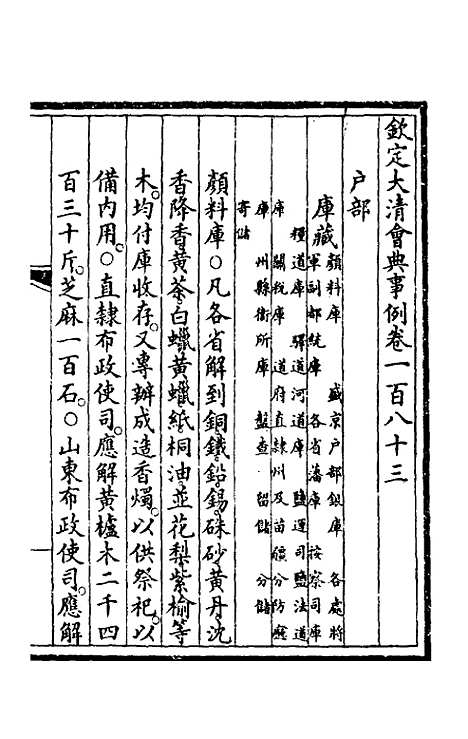 欽定大清會典事例卷一百八十三
戶部
庫藏 顏料庫 盛京戶部銀庫 各處將
軍副都統庫 各省藩庫 按察司庫
糧道庫 驛道河道庫 鹽運司鹽法道
庫 關稅庫 道府直隸州及苗疆分防廳
庫 州縣衛所庫 盤查 留儲 分儲
寄儲
顏料庫○凡各省解到銅鐵鉛錫硃砂黃丹沈
香降香黃茶白蠟黃蠟紙桐油並花梨紫榆等
木均付庫收存又專辦成造香燭以供祭祀以
備內用○直隸布政使司應解黃櫨木二千四
百三十斤芝麻一百石○山東布政使司應解